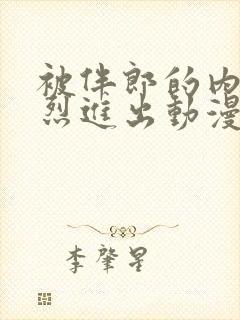 被伴郎的内
烈進出動漫
李肇星